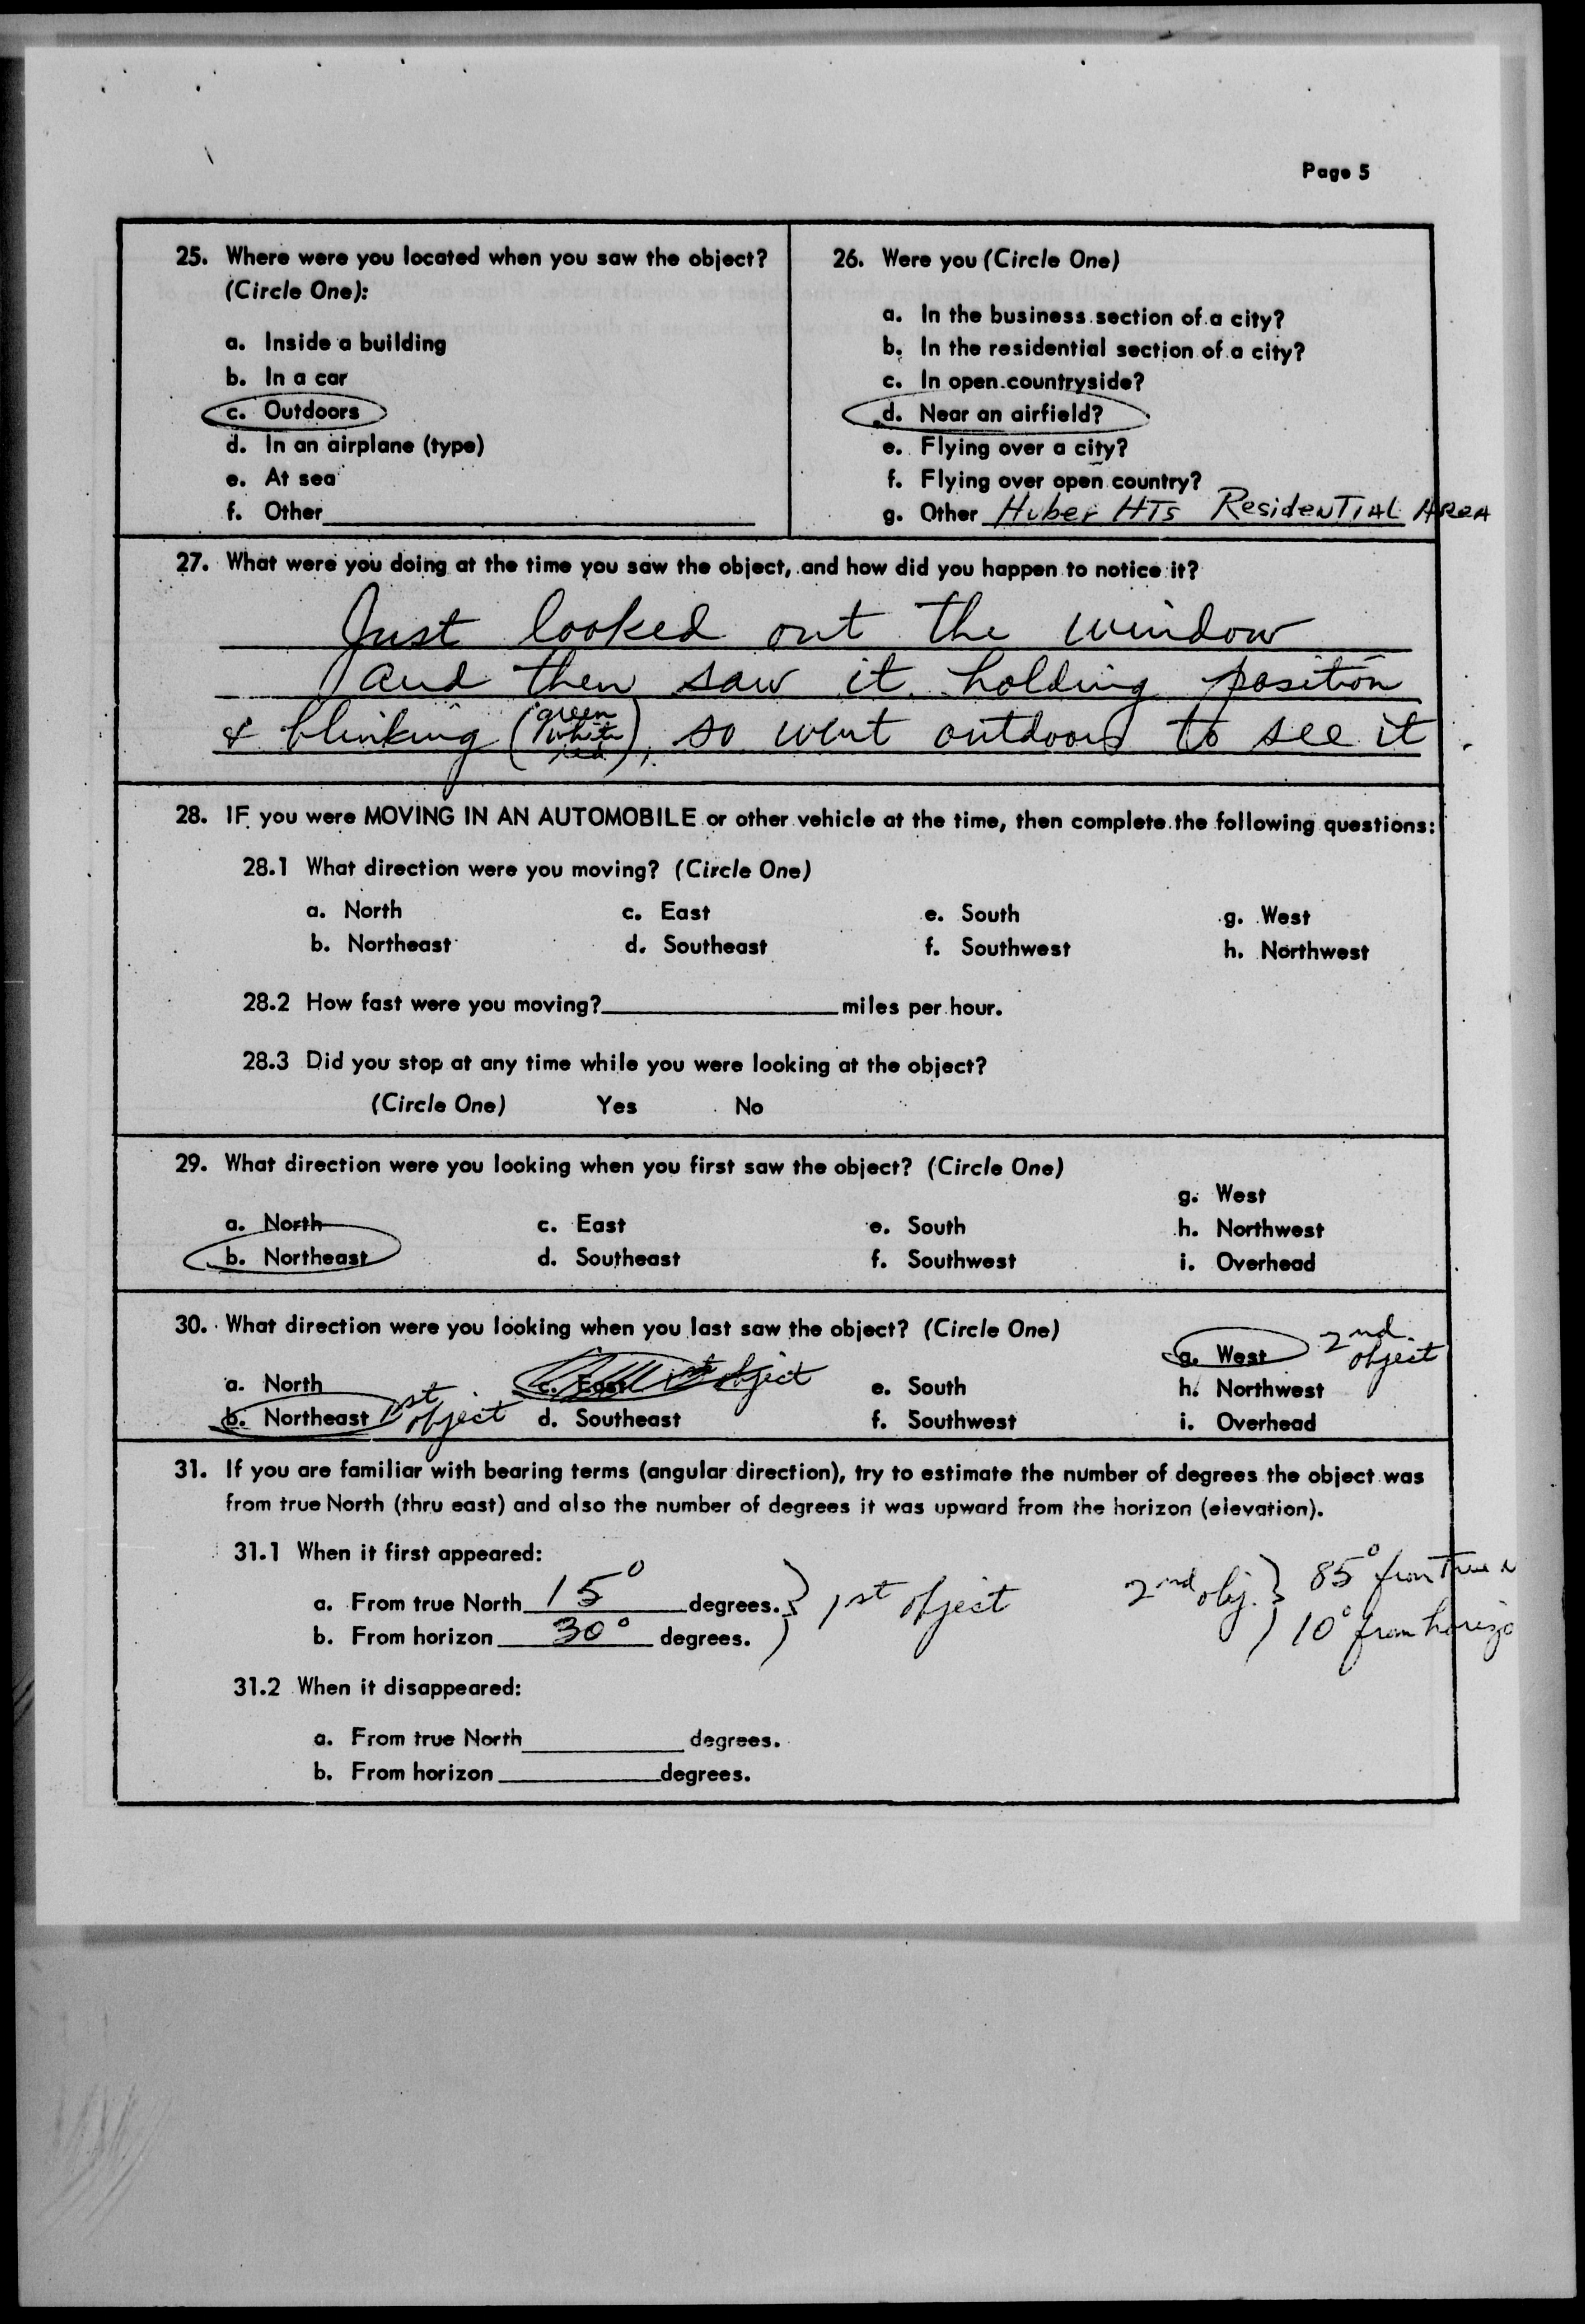 Page 5
25. Where were you located when you saw the object?
(Circle One):
a. Inside a building
b. In a car
c. Outdoors
d. In an airplane (type)
e. At sea
f. Other
26. Were you (Circle One)
a. In the business section of a city?
b. In the residential section of a city?
c. In open countryside?
d. Near an airfield?
e. Flying over a city?
f. Flying over open country?
g. Other Huber HTs ResidenTIAL AReA
27. What were you doing at the time you saw the object, and how did you happen to notice it?
Just looked out the window
and then saw it holding position
& blinking (green white red), so went outdoors to see it
28. IF you were MOVING IN AN AUTOMOBILE or other vehicle at the time, then complete the following questions:
28.1 What direction were you moving? (Circle One)
a. North c. East e. South g. West
b. Northeast d. Southeast f. Southwest h. Northwest
28.2 How fast were you moving? miles per hour.
28.3 Did you stop at any time while you were looking at the object?
(Circle One) Yes No
29. What direction were you looking when you first saw the object? (Circle One)
g. West
a. North c. East e. South h. Northwest
b. Northeast d. Southeast f. Southwest i. Overhead
30. What direction were you looking when you last saw the object? (Circle One)
g. West 2nd object
a. North c. East 1st object e. South h. Northwest
b. Northeast 1st object d. Southeast f. Southwest i. Overhead
31. If you are familiar with bearing terms (angular direction), try to estimate the number of degrees the object was
from true North (thru east) and also the number of degrees it was upward from the horizon (elevation).
31.1 When it first appeared:
a. From true North 15° degrees. } 1st object 2nd obj. } 85° from True N
b. From horizon 30° degrees. 10° from horizo
31.2 When it disappeared:
a. From true North degrees.
b. From horizon degrees.